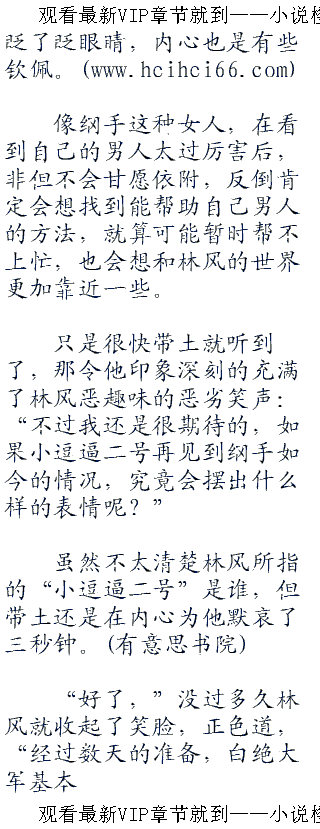 观看最新VIP章节就到——小说检
眨了眨眼睛，内心也是有些
钦佩。(www.hcihci66.com)
像纲手这种女人，在看
到自己的男人太过厉害后，
非但不会甘愿依附，反倒肯
定会想找到能帮助自己男人
的方法，就算可能暂时帮不
上忙，也会想和林风的世界
更加靠近一些。
只是很快带土就听到
了，那令他印象深刻的充满
了林风恶趣味的恶劣笑声：
“不过我还是很期待的，如
果小逗逼二号再见到纲手如
今的情况，究竟会摆出什么
样的表情呢？”
虽然不太清楚林风所指
的“小逗逼二号”是谁，但
带土还是在内心为他默哀了
三秒钟。(有意思书院)
“好了，”没过多久林
风就收起了笑脸，正色道，
“经过数天的准备，白绝大
军基本
观看最新VIP章节就到——小说检